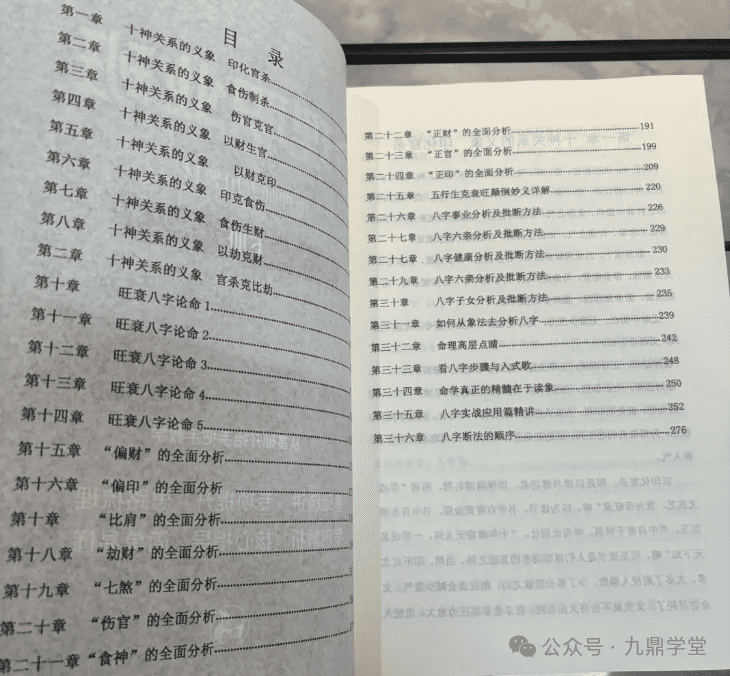 目 录
第一章 十神关系的义象 印化官杀
第二章 十神关系的义象 食伤制杀
第三章 十神关系的义象 伤官克官
第四章 十神关系的义象 以财生官
第五章 十神关系的义象 以财克印
第六章 十神关系的义象 印克食伤
第七章 十神关系的义象 食伤生财
第八章 十神关系的义象 以劫克财
第二章 十神关系的义象 官杀克比劫
第十章 旺衰八字论命1
第十一章 旺衰八字论命2
第十二章 旺衰八字论命3
第十三章 旺衰八字论命4
第十四章 旺衰八字论命5
第十五章 “偏财”的全面分析
第十六章 “偏印”的全面分析
第十章 “比肩”的全面分析
第十八章 “劫财”的全面分析
第十九章 “七煞”的全面分析
第二十章 “伤官”的全面分析
第二十一章 “食神”的全面分析
第二十二章 “正财”的全面分析 191
第二十三章 “正官”的全面分析 199
第二十四章 “正印”的全面分析 209
第二十五章 五行生克衰旺颠倒妙义详解 220
第二十六章 八字事业分析及批断方法 226
第二十七章 八字六亲分析及批断方法 229
第二十八章 八字健康分析及批断方法 230
第二十九章 八字六亲分析及批断方法 233
第三十章 八字子女分析及批断方法 235
第三十一章 如何从象法去分析八字 239
第三十二章 命理高层点睛 242
第三十三章 看八字步骤与入式歌 248
第三十四章 命学真正的精髓在于读象 250
第三十五章 八字实战应用篇精讲 252
第三十六章 八字断法的顺序 276
公众号·九鼎学堂